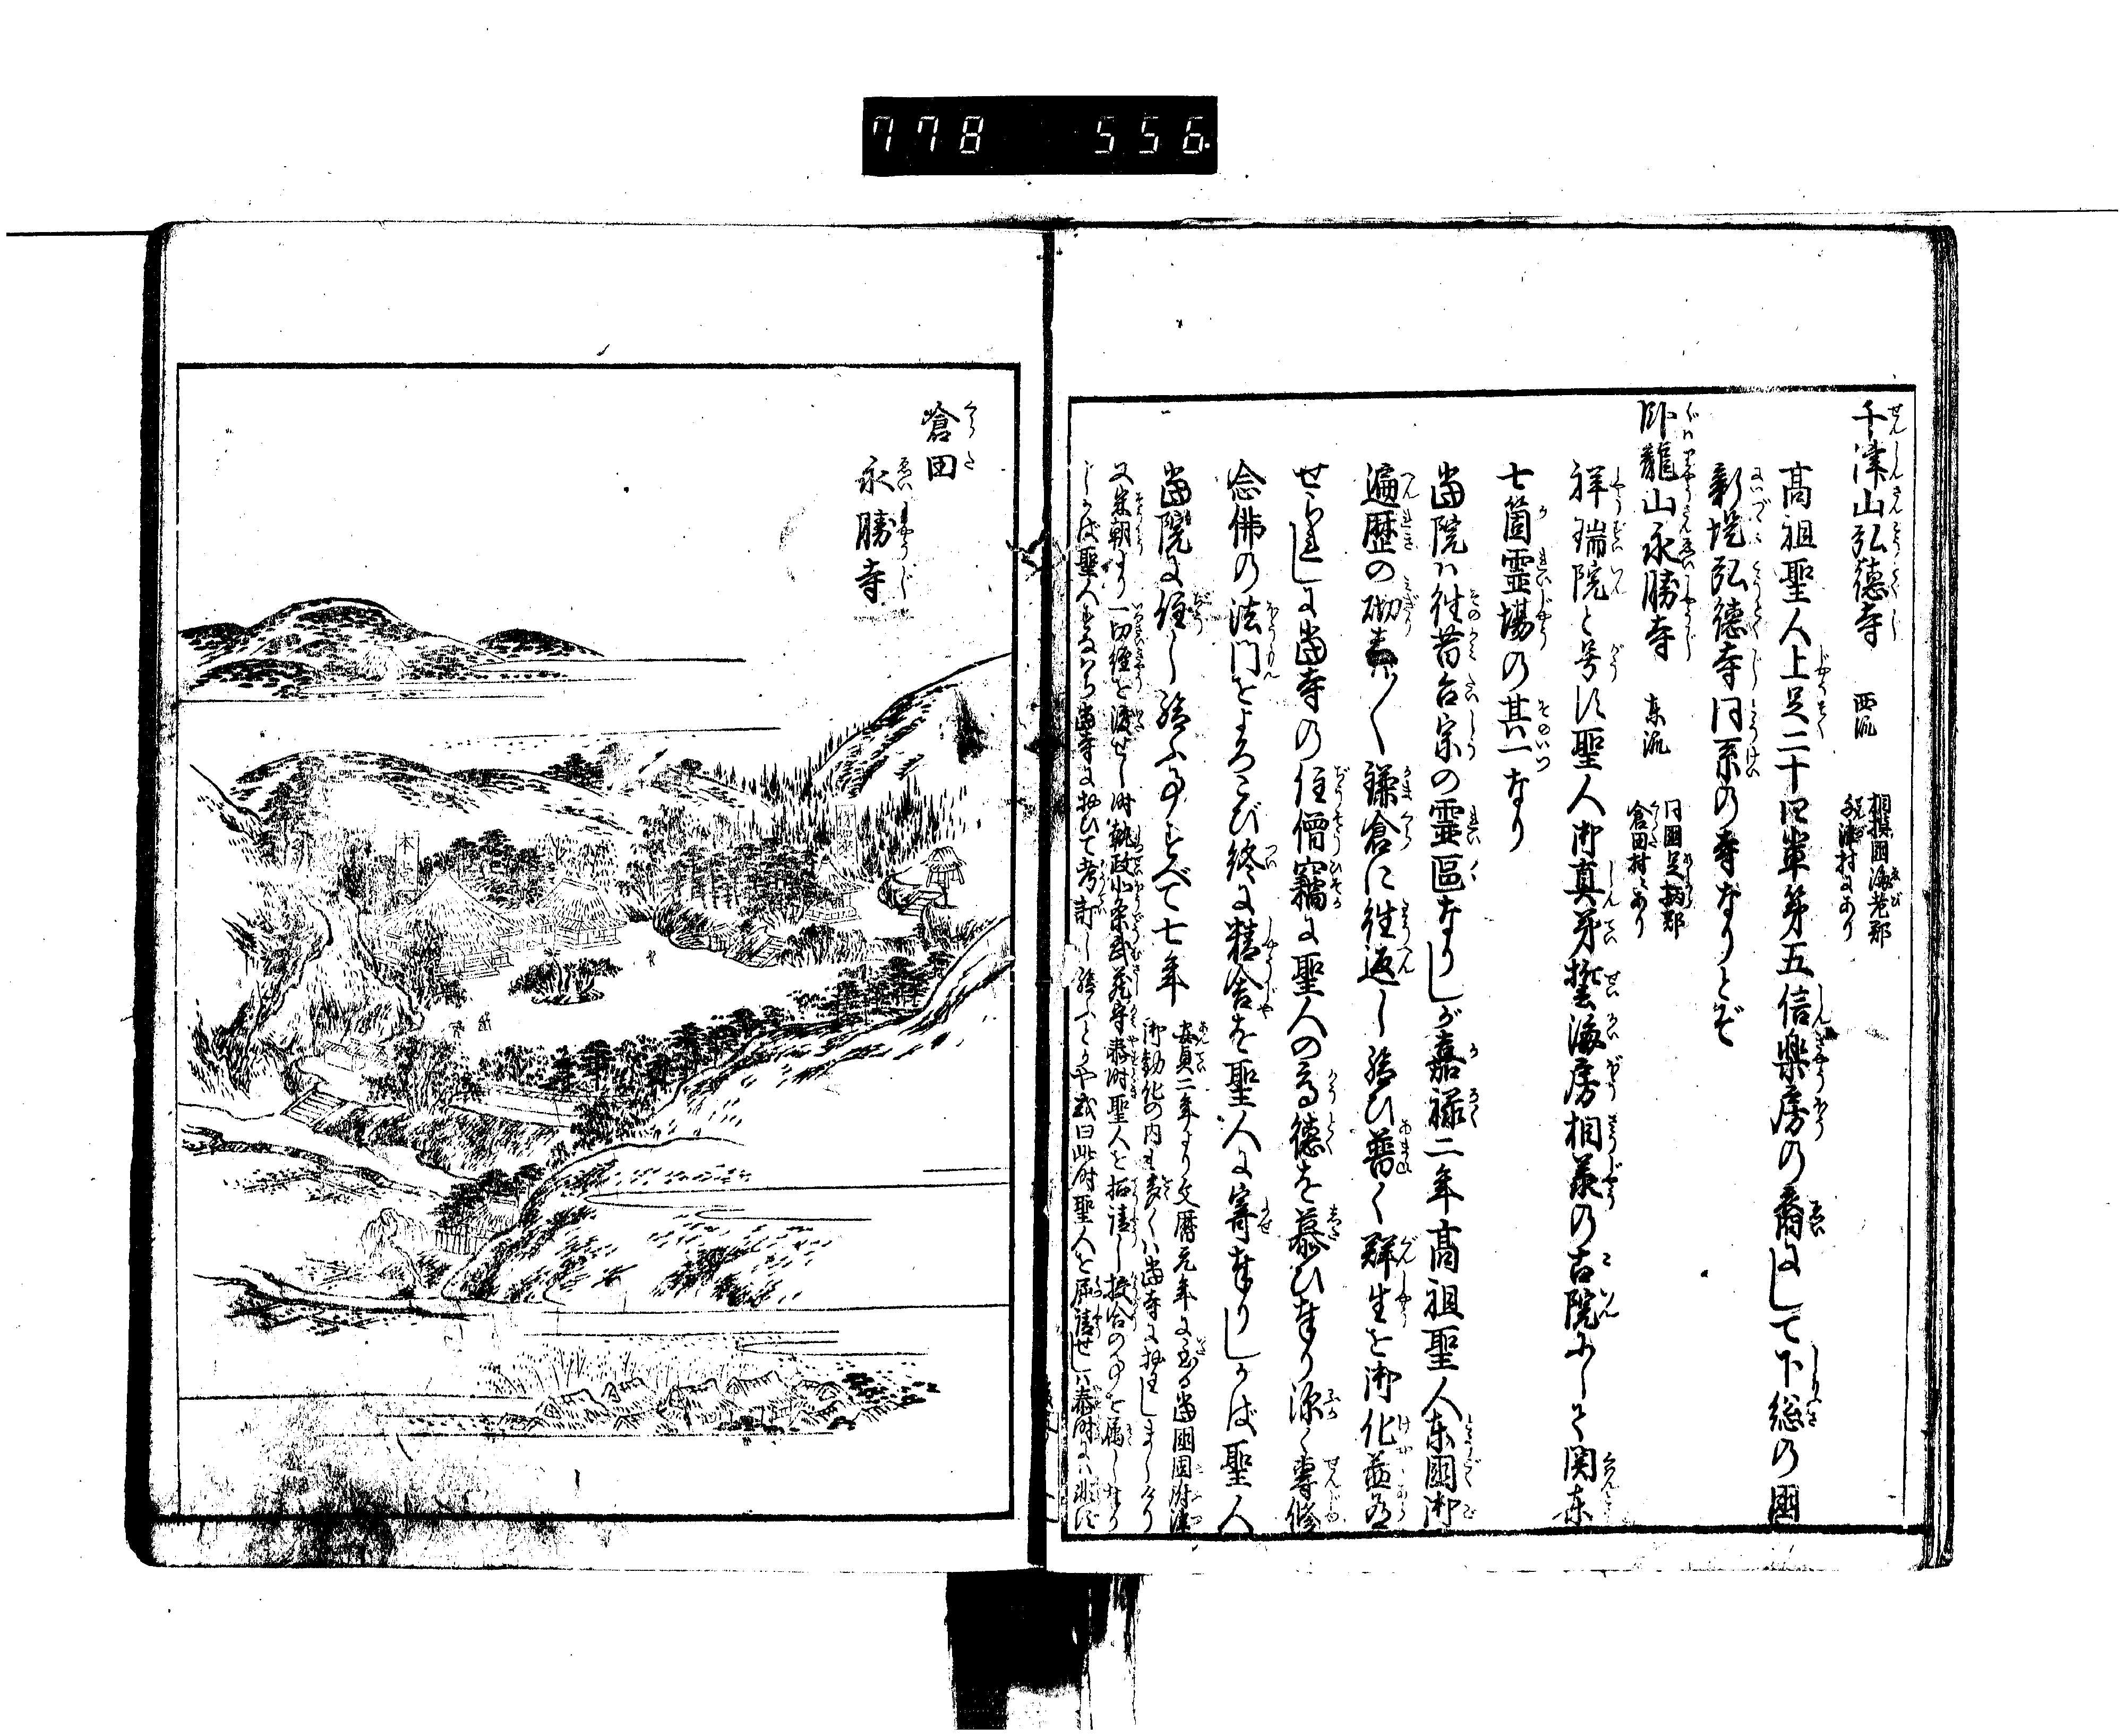 778 556
千津山弘徳寺 西派 相摸国海老郡
津村にあり
高祖聖人上足二十四輩第五信楽房の裔にして下総の国
新堤弘徳寺同系の寺なりとぞ
臥龍山永勝寺 東派 同国足柄郡
倉田村にあり
祥瑞院と号す聖人御真弟誓海房相承の古院にして関東
七箇霊場の其一なり
当院ハ往昔台宗の霊区なりしが嘉禄二年高祖聖人東国御
遍歴の砌しば〳〵鎌倉に往返し給ひ普く群生を御化益
せられしに当寺の住僧竊に聖人の高徳を慕ひ奉り深く専修
念佛の法門をよろこび終に精舎を聖人に寄奉りしかば聖人
当院に住し給ふ事すべて七年 安貞二年より文暦元年に至る当国国府津
御勧化の内も多くハ当寺に在しましけり
又宋朝より一切経を渡せし時執政北条武蔵守泰時聖人を招請し校合の事を属しけり
しかば聖人すなハち当寺に於て考訂し給ふとかや或曰此時聖人を屈請せしハ泰時にハ非ず
倉田
永勝寺
本